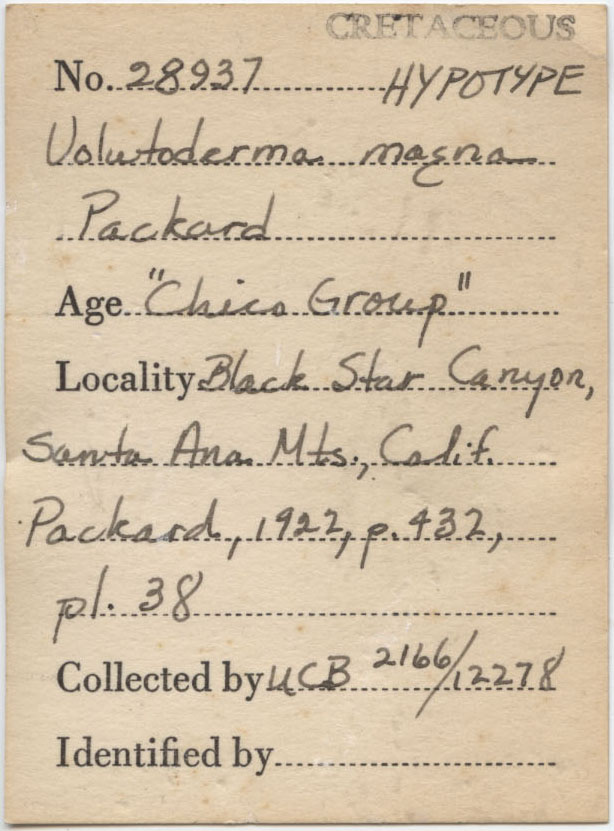 CRETACEOUS
No. 28937 HYPOTYPE
Volutoderma magna
Packard
Age "Chico Group"
Locality Black Star Canyon,
Santa Ana Mts., Calif.
Packard, 1922, p. 432,
pl. 38
Collected by UCB 2166/12278
Identified by